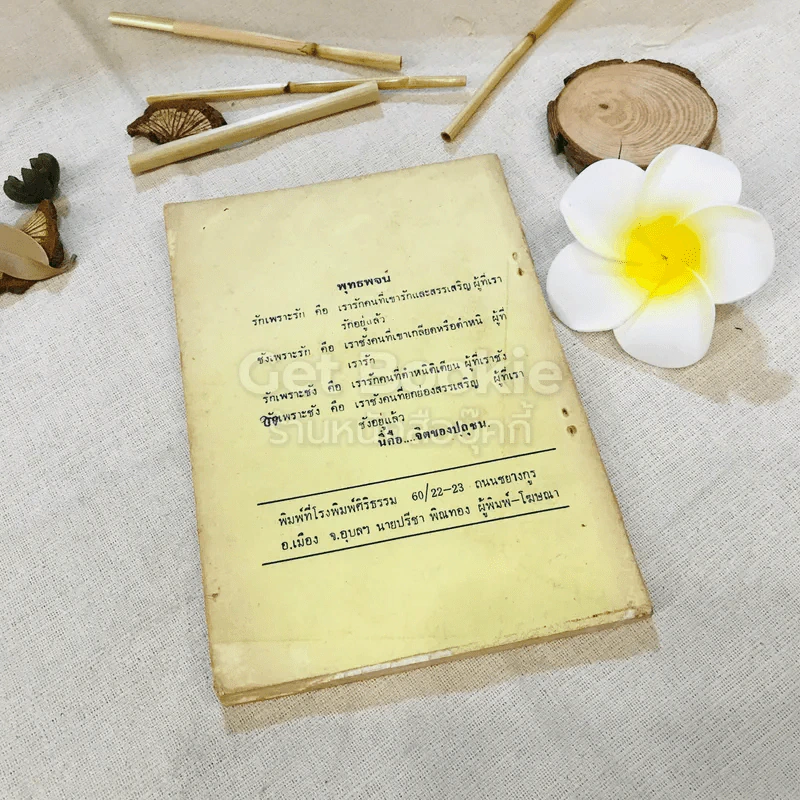 พุทธพจน์
รักเพราะรัก คือ เรารักคนที่เขารักและสรรเสริญ ผู้ที่เรา
รักอยู่แล้ว
ชังเพราะรัก คือ เราชังคนที่เขาเกลียดหรือตำหนิ ผู้ที่
เรารัก
รักเพราะชัง คือ เรารักคนที่ตำหนิติเตียน ผู้ที่เราชัง
ชังเพราะชัง คือ เราชังคนที่ยกย่องสรรเสริญ ผู้ที่เรา
ชังอยู่แล้ว
นี้คือ....จิตของปุถุชน.
Get Bookie
ร้านหนังสือบุ๊คกี้
พิมพ์ที่โรงพิมพ์ศิริธรรม 60/22-23 ถนนชยางกูร
อ.เมือง จ.อุบลฯ นายปรีชา พิณทอง ผู้พิมพ์-โฆษณา